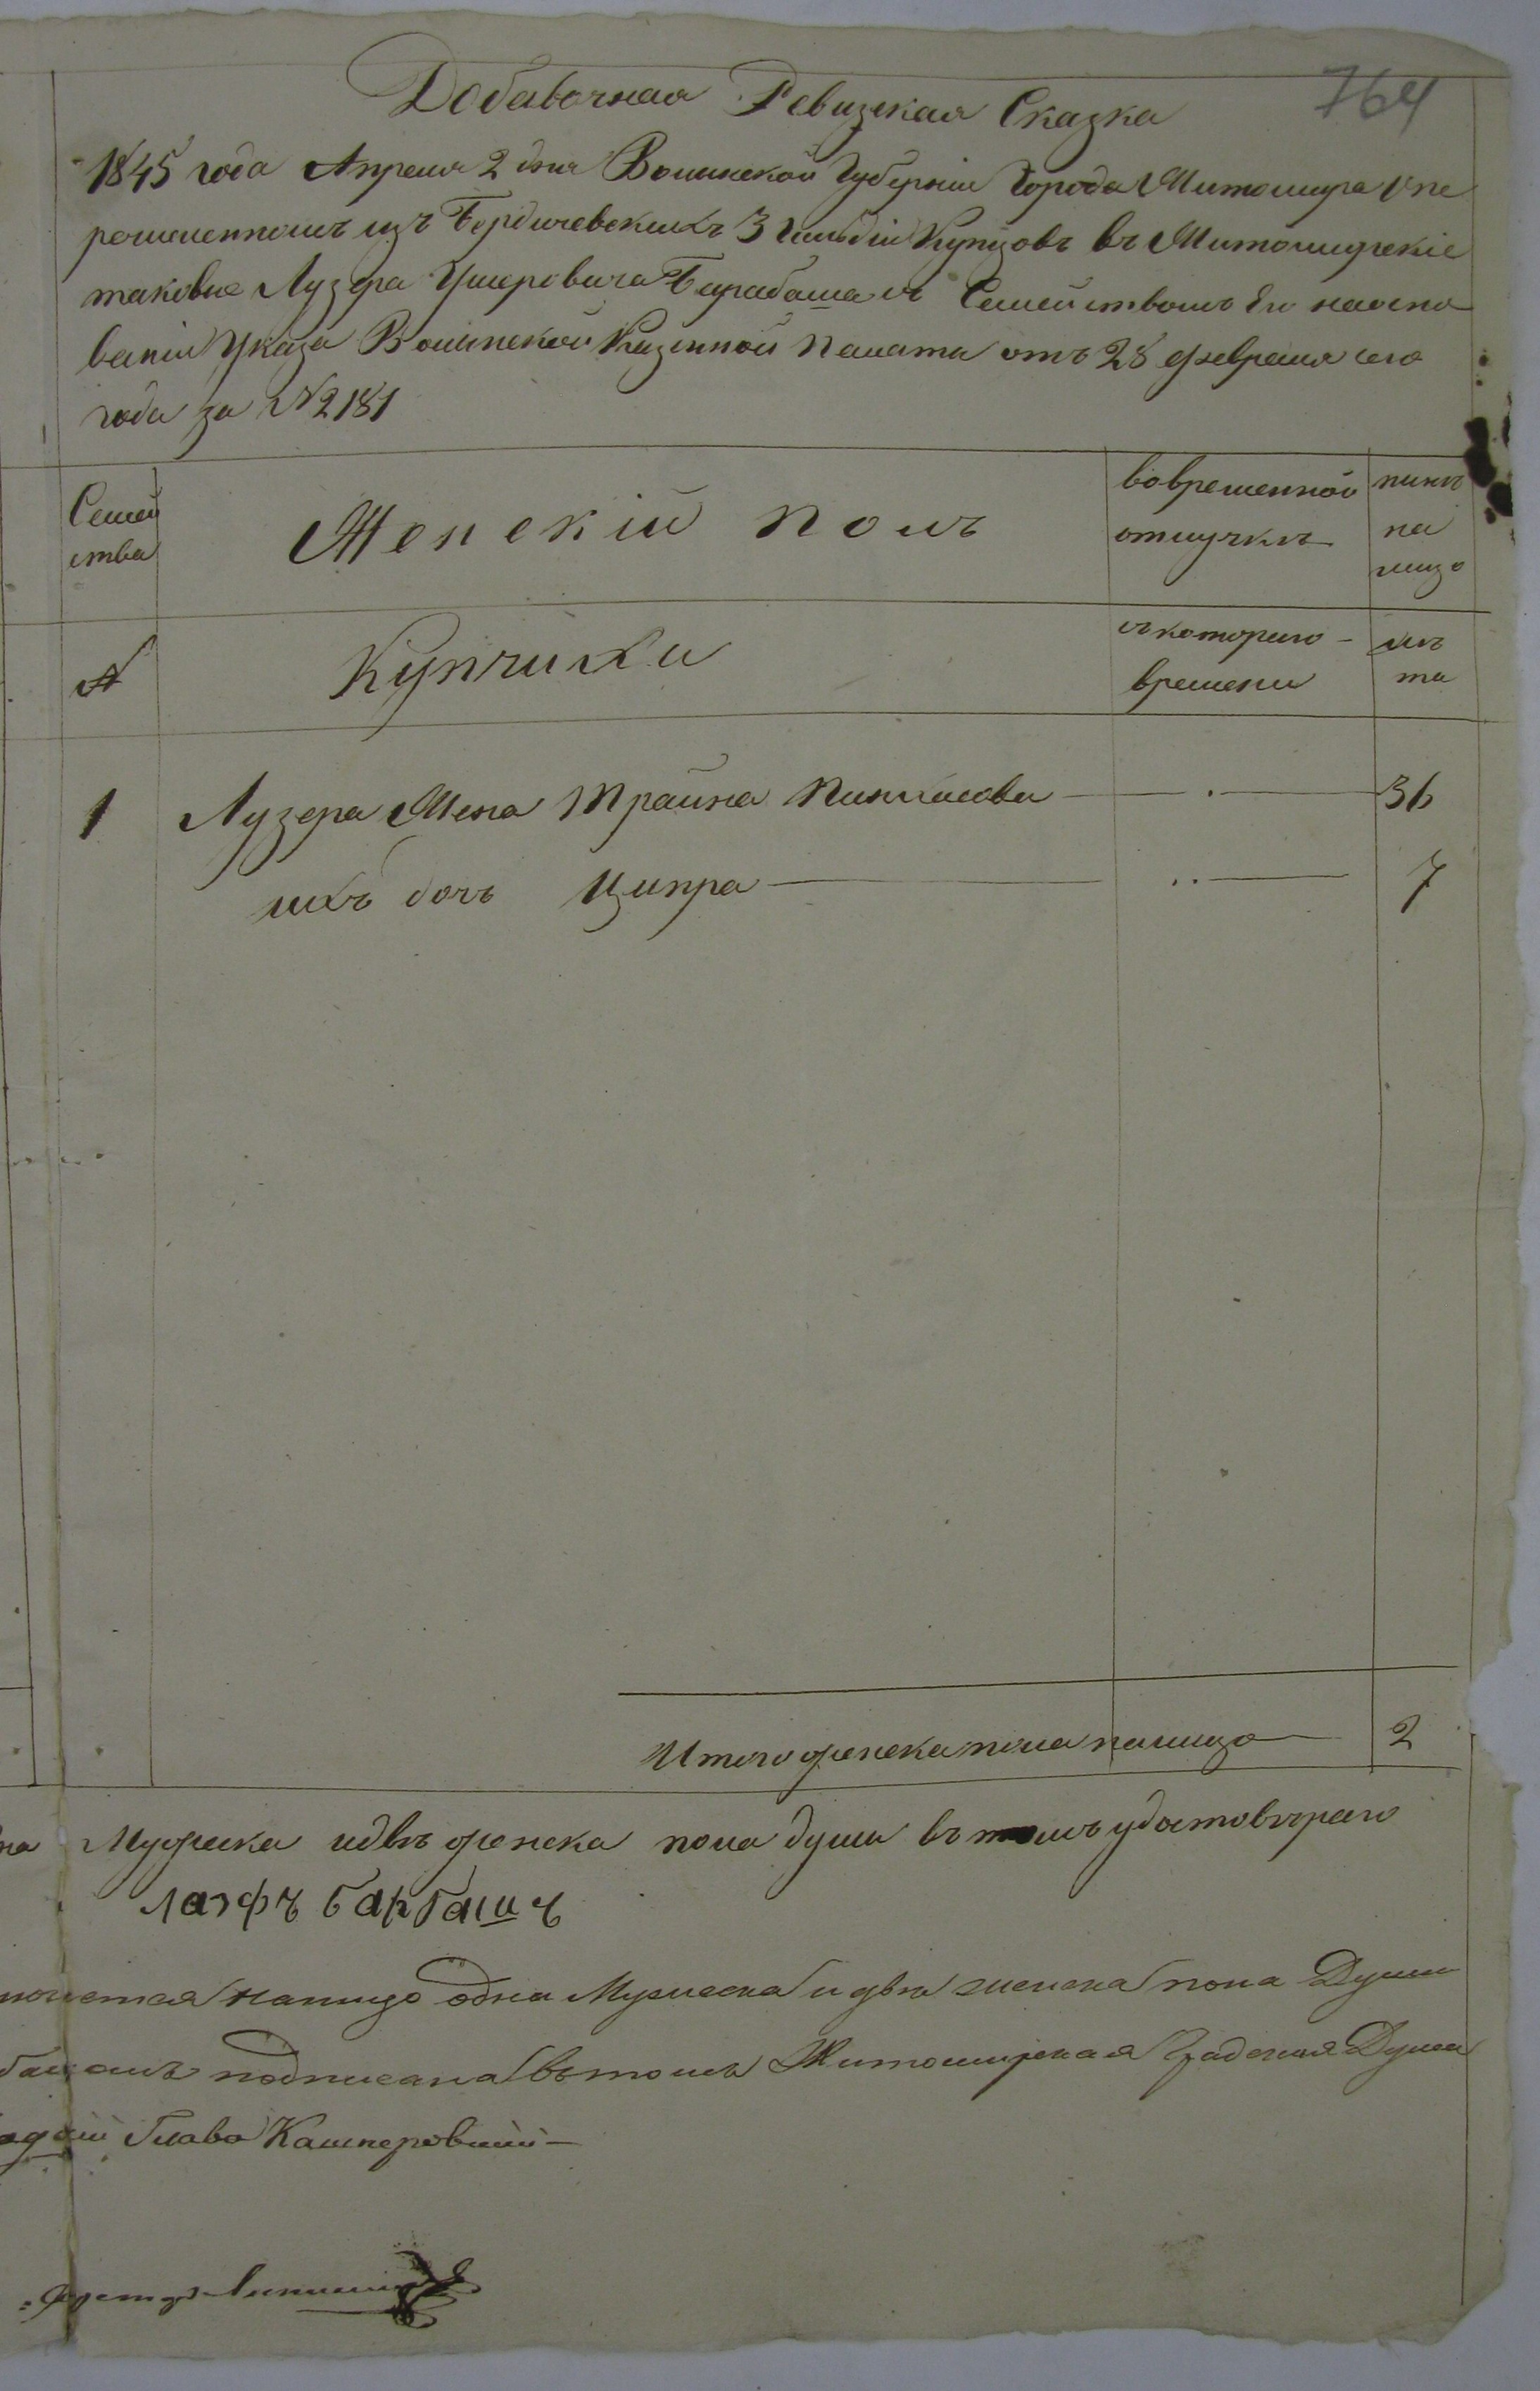 764
Добавочная Ревизская Сказка
1845 года Апреля 2 дня Волынской Губерніи Города Житомира о пе
речисленномъ изъ Бердичевскихъ 3 Гильдіи Купцовъ въ Житомирскіе
таковые Лузера Умеровича Барабаша съ Семействомъ Его на осно
ваніи Указа Волынской Казенной палаты отъ 28 февраля сего
года за № 2181
Семей
ства
Женскій полъ
во временной
отлучкѣ
нынѣ
на
лицо
№
Купчихи
съ котораго
времени
лѣ
та
1 Лузера Жена Трайна Пинкасова — 36
ихъ дочь Ципра — 7
Итого женска пола налицо — 2
на Мужеска и двѣ женска пола души въ томъ удостовѣряю
Лазфъ барбашъ
налицо одна Мужеска и двѣ женска пола Души
подписана въ томъ Житомирская Градская Дума
Глава Кашперовскій